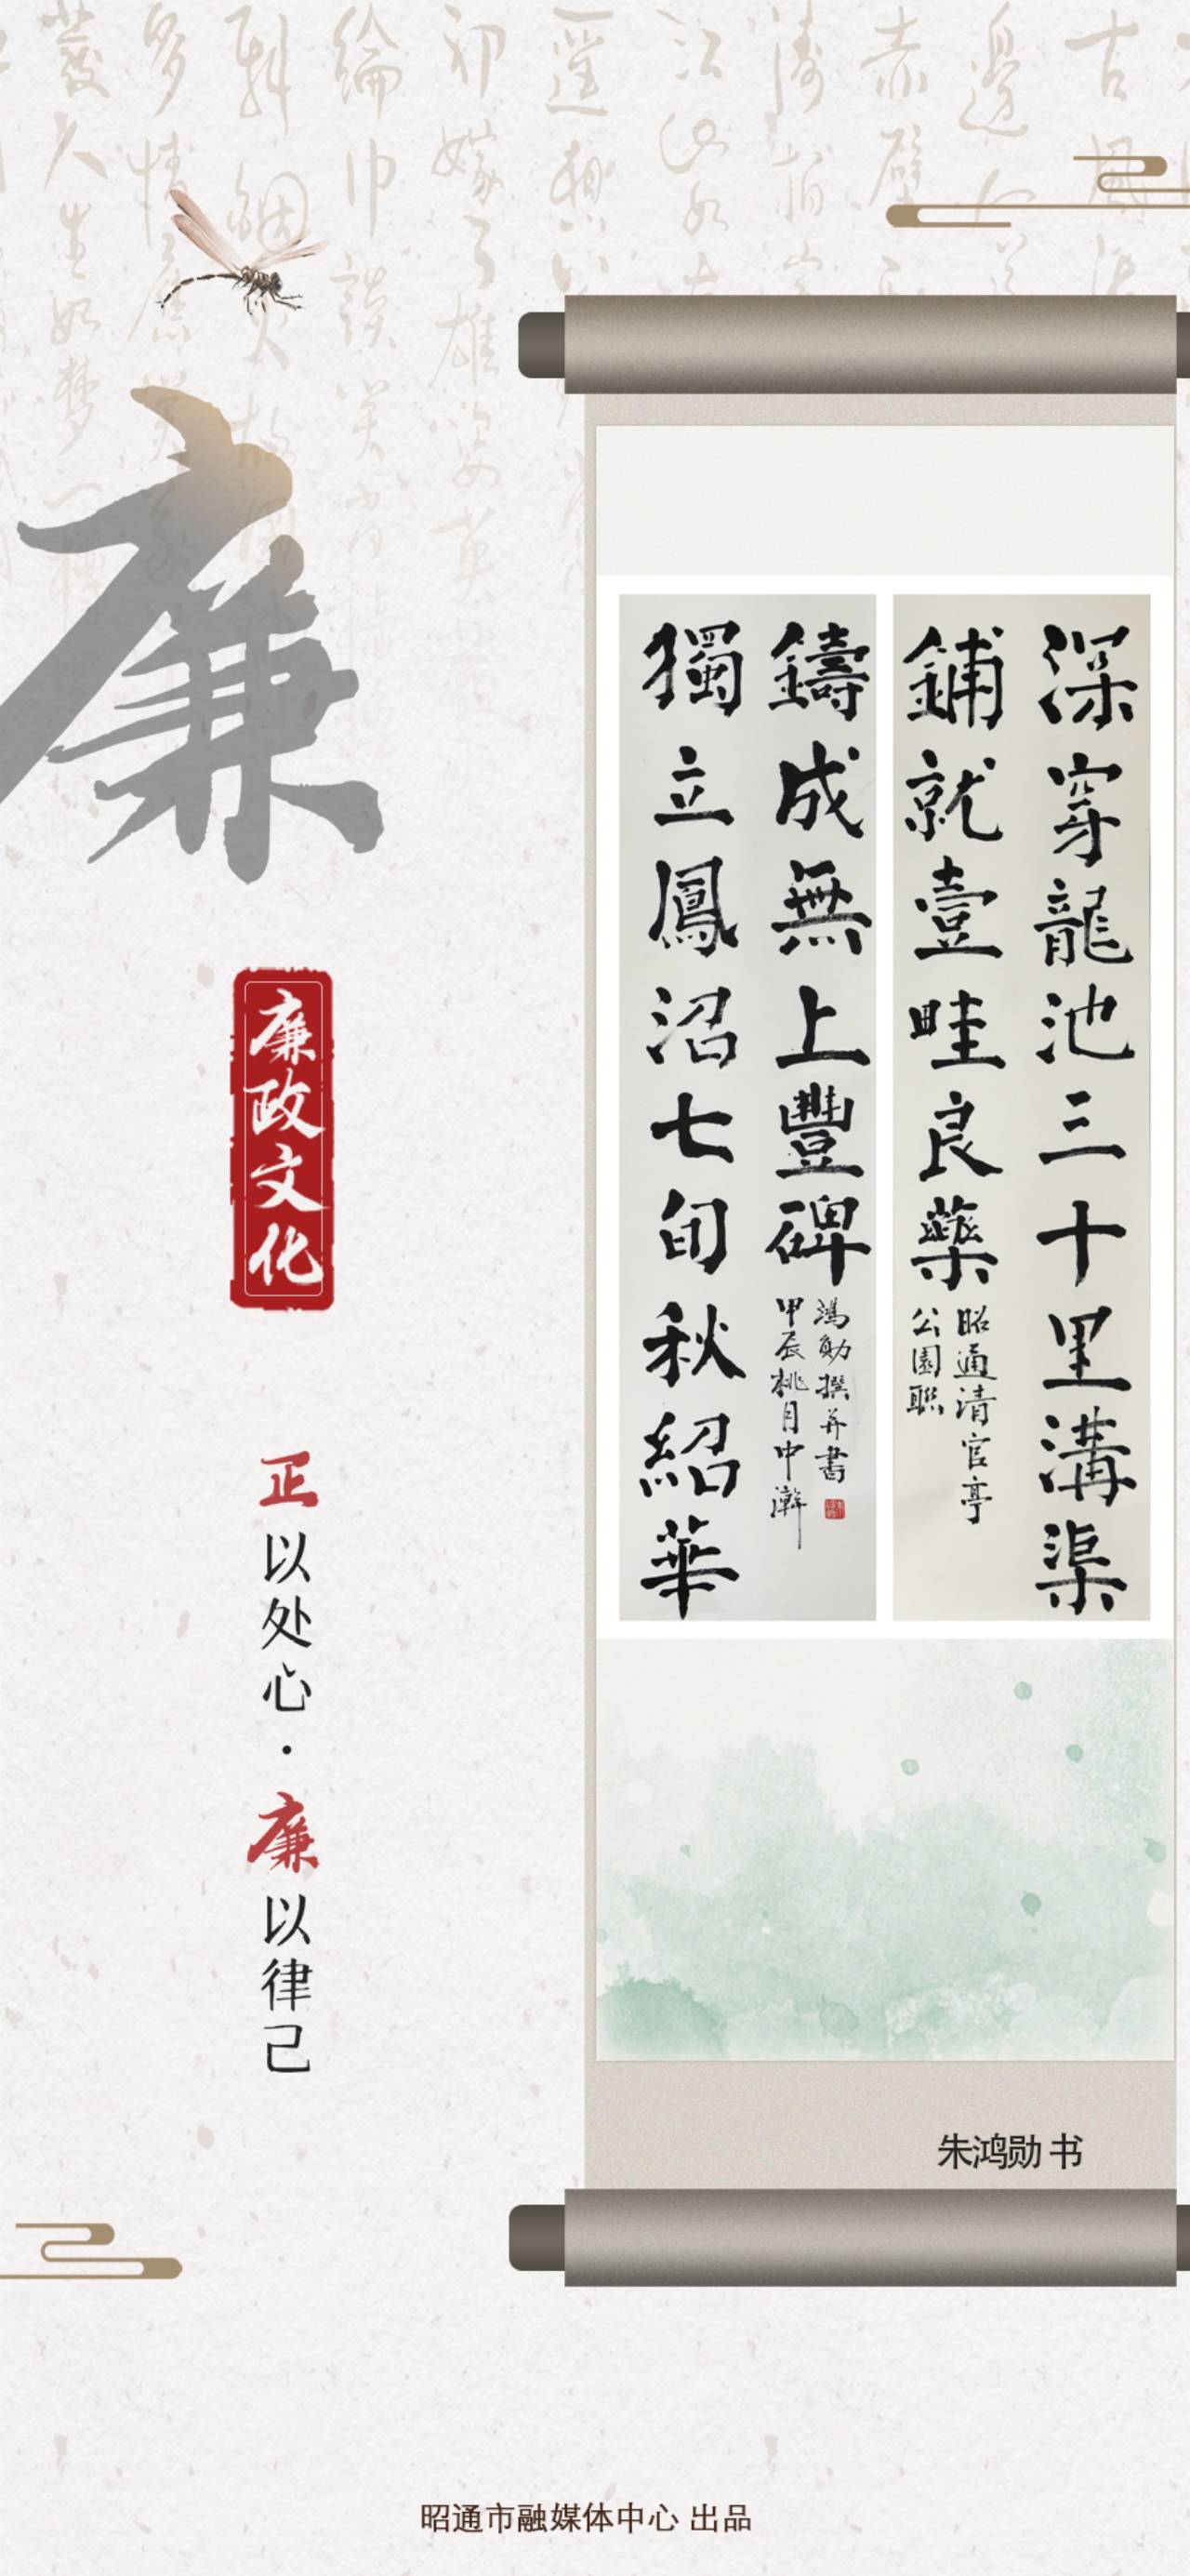 廉
廉政文化
正以处心·廉以律己
深穿龍池三十里溝渠
鋪就壹畦良藥
昭通清官亭
公園聯
鑄成無上豐碑
獨立鳳沼七旬秋紹華
鴻勛撰并書
甲辰桃月中澣
朱鸿勋 书
昭通市融媒体中心 出品